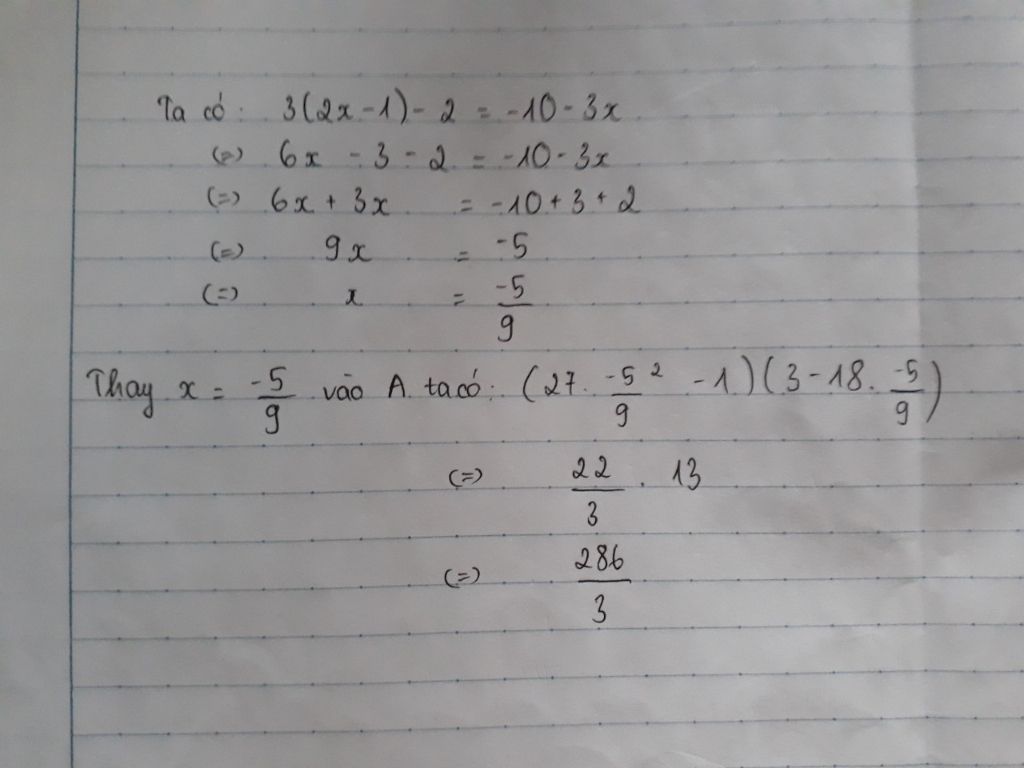 Ta có: 3(2x - 1) - 2 = -10 - 3x
(=) 6x - 3 - 2 = -10 - 3x
(=) 6x + 3x = -10 + 3 + 2
(=) 9x = -5
(=) x = -5/9
Thay x = -5/9 vào A ta có: (27. -5²/9 - 1)(3 - 18. -5/9)
(=) 22/3 . 13
(=) 286/3